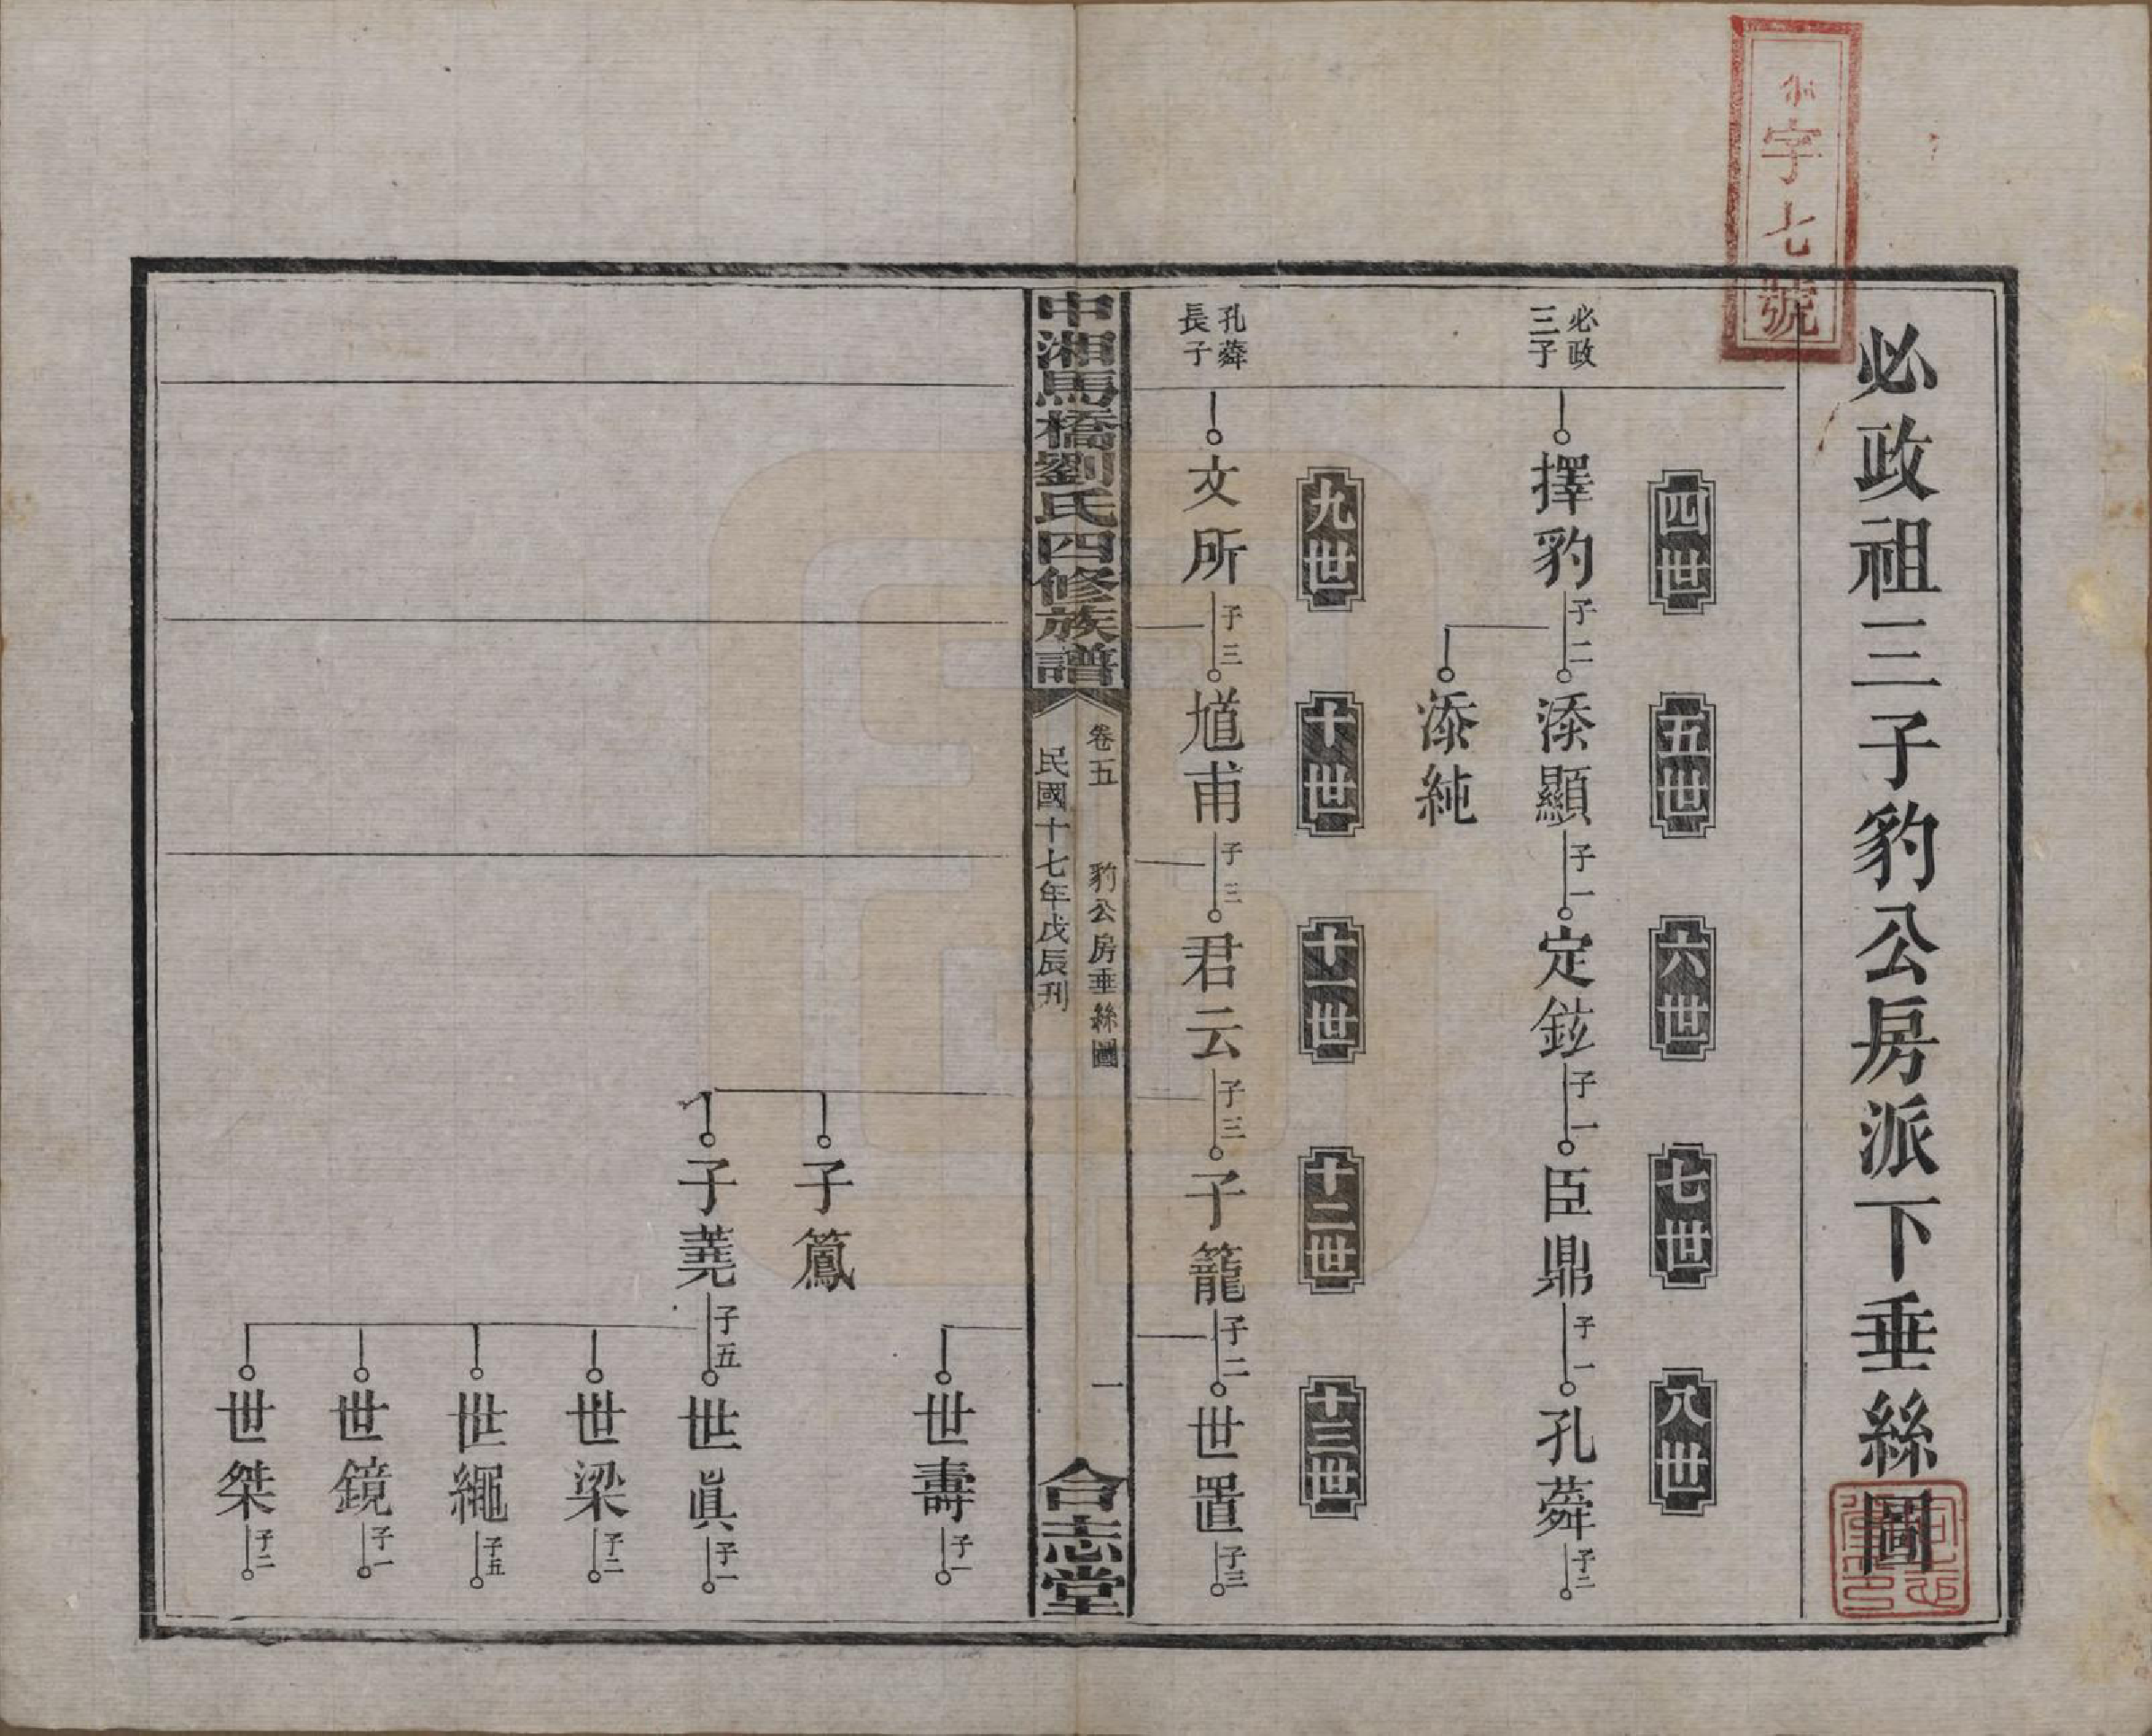 字七號
必政祖三子豹公房派下垂絲圖
四世
五世
六世
七世
八世
必政三子
擇豹 子二
添顯 子一
定鉉 子一
臣鼎 子一
孔蕣 子二
添純
九世
十世
十一世
十二世
十三世
孔蕣長子
文所 子三
馗甫 子三
君云 子三
子籠 子二
世置 子三
中湘馬橋劉氏四修族譜
卷五 豹公房垂絲圖 一
民國十七年戊辰刊
合志堂
世壽 子一
子鳳
子蕘 子五
世眞 子一
世梁 子二
世繩 子五
世鏡 子一
世桀 子二